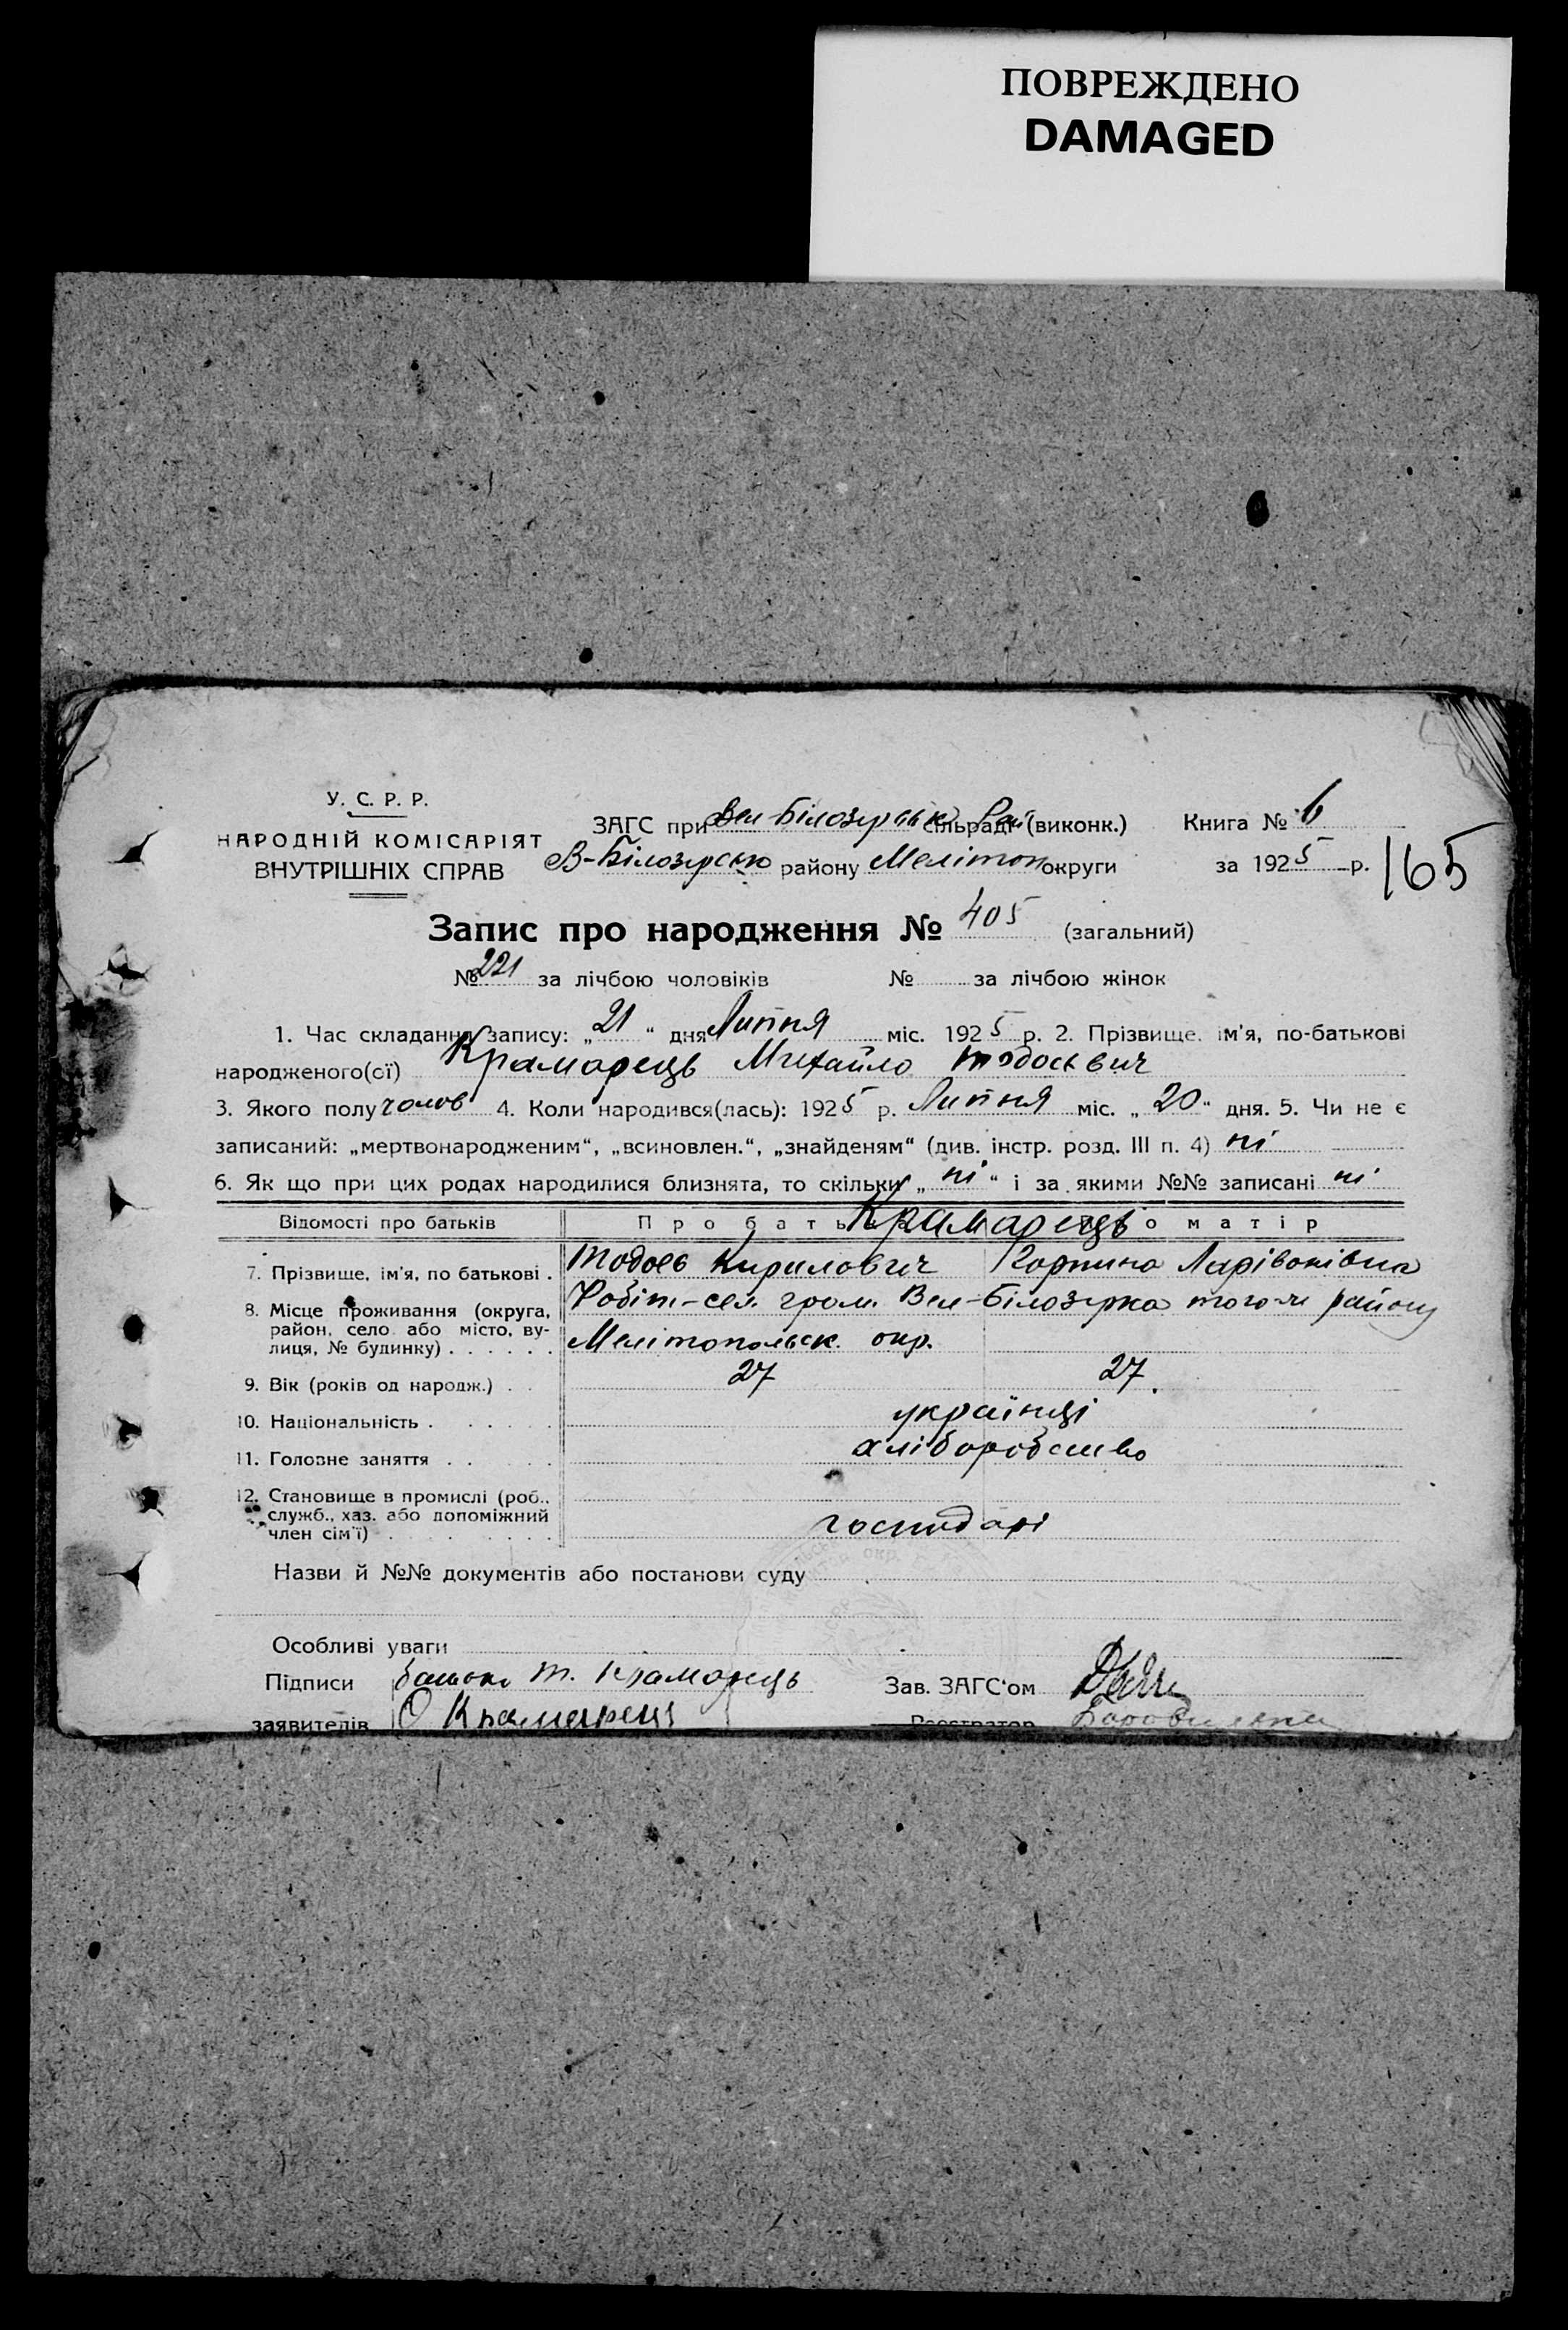 ПОВРЕЖДЕНО
DAMAGED
У. С. Р. Р.
НАРОДНІЙ КОМІСАРІЯТ
ВНУТРІШНІХ СПРАВ
ЗАГС при Вел-Білозірськ сільраді (виконк.) Книга № 6
В-Білозірсько району Мелітоп округи за 1925 р. 165
Запис про народження № 405 (загальний)
№ 221 за лічбою чоловіків № за лічбою жінок
1. Час складання запису: „21“ дня Липня міс. 1925 р. 2. Прізвище, ім'я, по-батькові
народженого(ої) Крамарець Михайло Тодосьвич
3. Якого полу чолов 4. Коли народився(лась): 1925 р. Липня міс. „20“ дня. 5. Чи не є
записаний: „мертвонародженим“, „всиновлен.“, „знайденям“ (див. інстр. розд. III п. 4) ні
6. Як що при цих родах народилися близнята, то скільки „ні“ і за якими №№ записані ні
Відомості про батьків Про батька Крамарець Про матір
7. Прізвище, ім'я, по батькові . Тодось Кирилович Горпина Ларівонівна
8. Місце проживання (округа, район, село або місто, вулиця, № будинку) . . . . . . Робіт-сел. гром. Вел-Білозірка того-ж району
Мелітопольск. окр.
9. Вік (років од народж.) . . 27 27.
10. Національність . . . . . . українці
11. Головне заняття . . . . хліборобство
12. Становище в промислі (роб., служб., хаз. або допоміжний член сім'ї) . . . . . господарі
Назви й №№ документів або постанови суду
Особливі уваги
Підписи батько Т. Крамарець Зав. ЗАГС'ом
заявителів О Крамарець Реєстратор